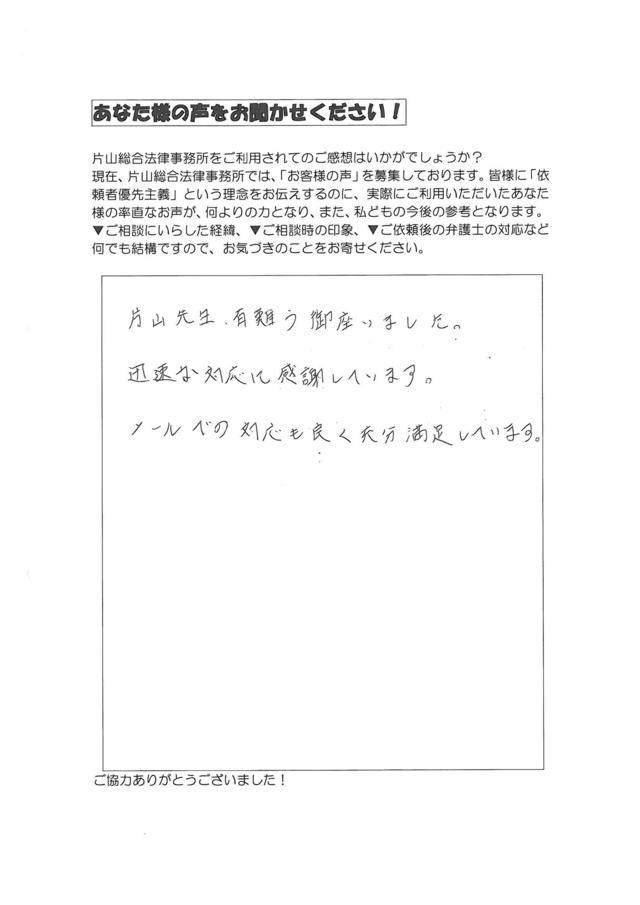 あなた様の声をお聞かせください！
片山総合法律事務所をご利用されてのご感想はいかがでしょうか？
現在、片山総合法律事務所では、「お客様の声」を募集しております。皆様に「依
頼者優先主義」という理念をお伝えするのに、実際にご利用いただいたあなた
様の率直なお声が、何よりの力となり、また、私どもの今後の参考となります。
▼ご相談にいらした経緯、▼ご相談時の印象、▼ご依頼後の弁護士の対応など
何でも結構ですので、お気づきのことをお寄せください。
片山先生、有難う御座いました。
迅速な対応に感謝しています。
メールでの対応も良く充分満足しています。
ご協力ありがとうございました！